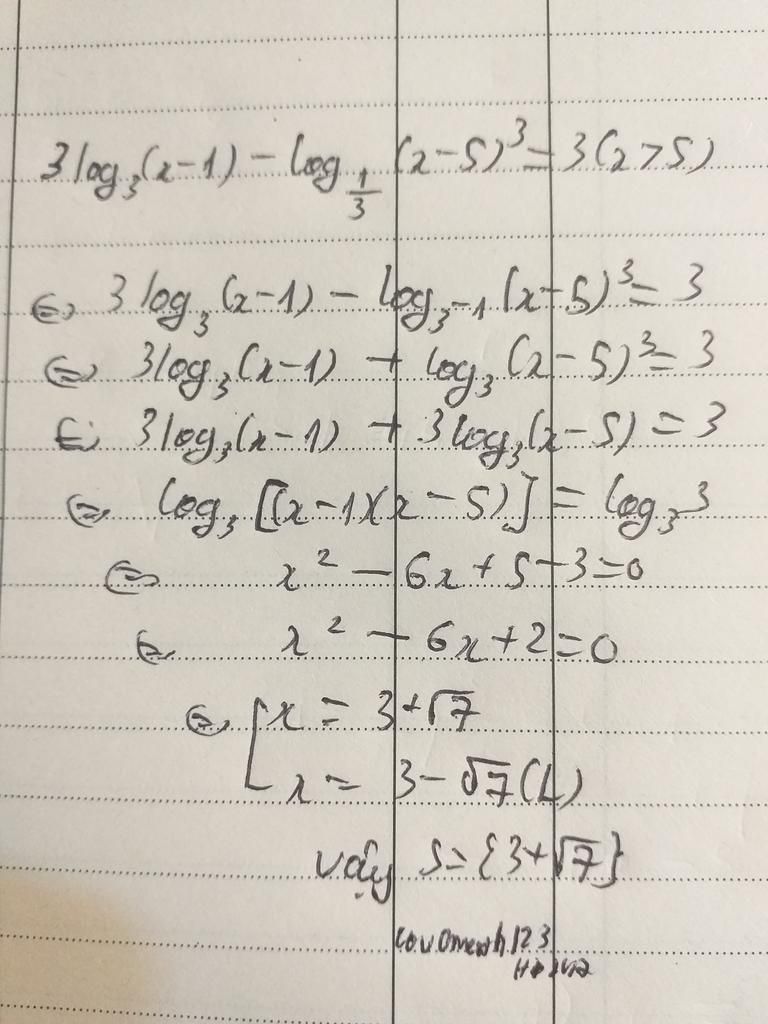 3log₃(x-1) - log_{1/3} (x-5)³ = 3 (x>5)
⇔ 3log₃(x-1) - log_{3^{-1}} (x-5)³ = 3
⇔ 3log₃(x-1) + log₃ (x-5)³ = 3
⇔ 3log₃(x-1) + 3log₃(x-5) = 3
⇔ log₃ [(x-1)(x-5)] = log₃3
⇔ x² - 6x + 5 - 3 = 0
⇔ x² - 6x + 2 = 0
⇔ [x = 3+√7
x = 3-√7 (L)
vậy S={3+√7}